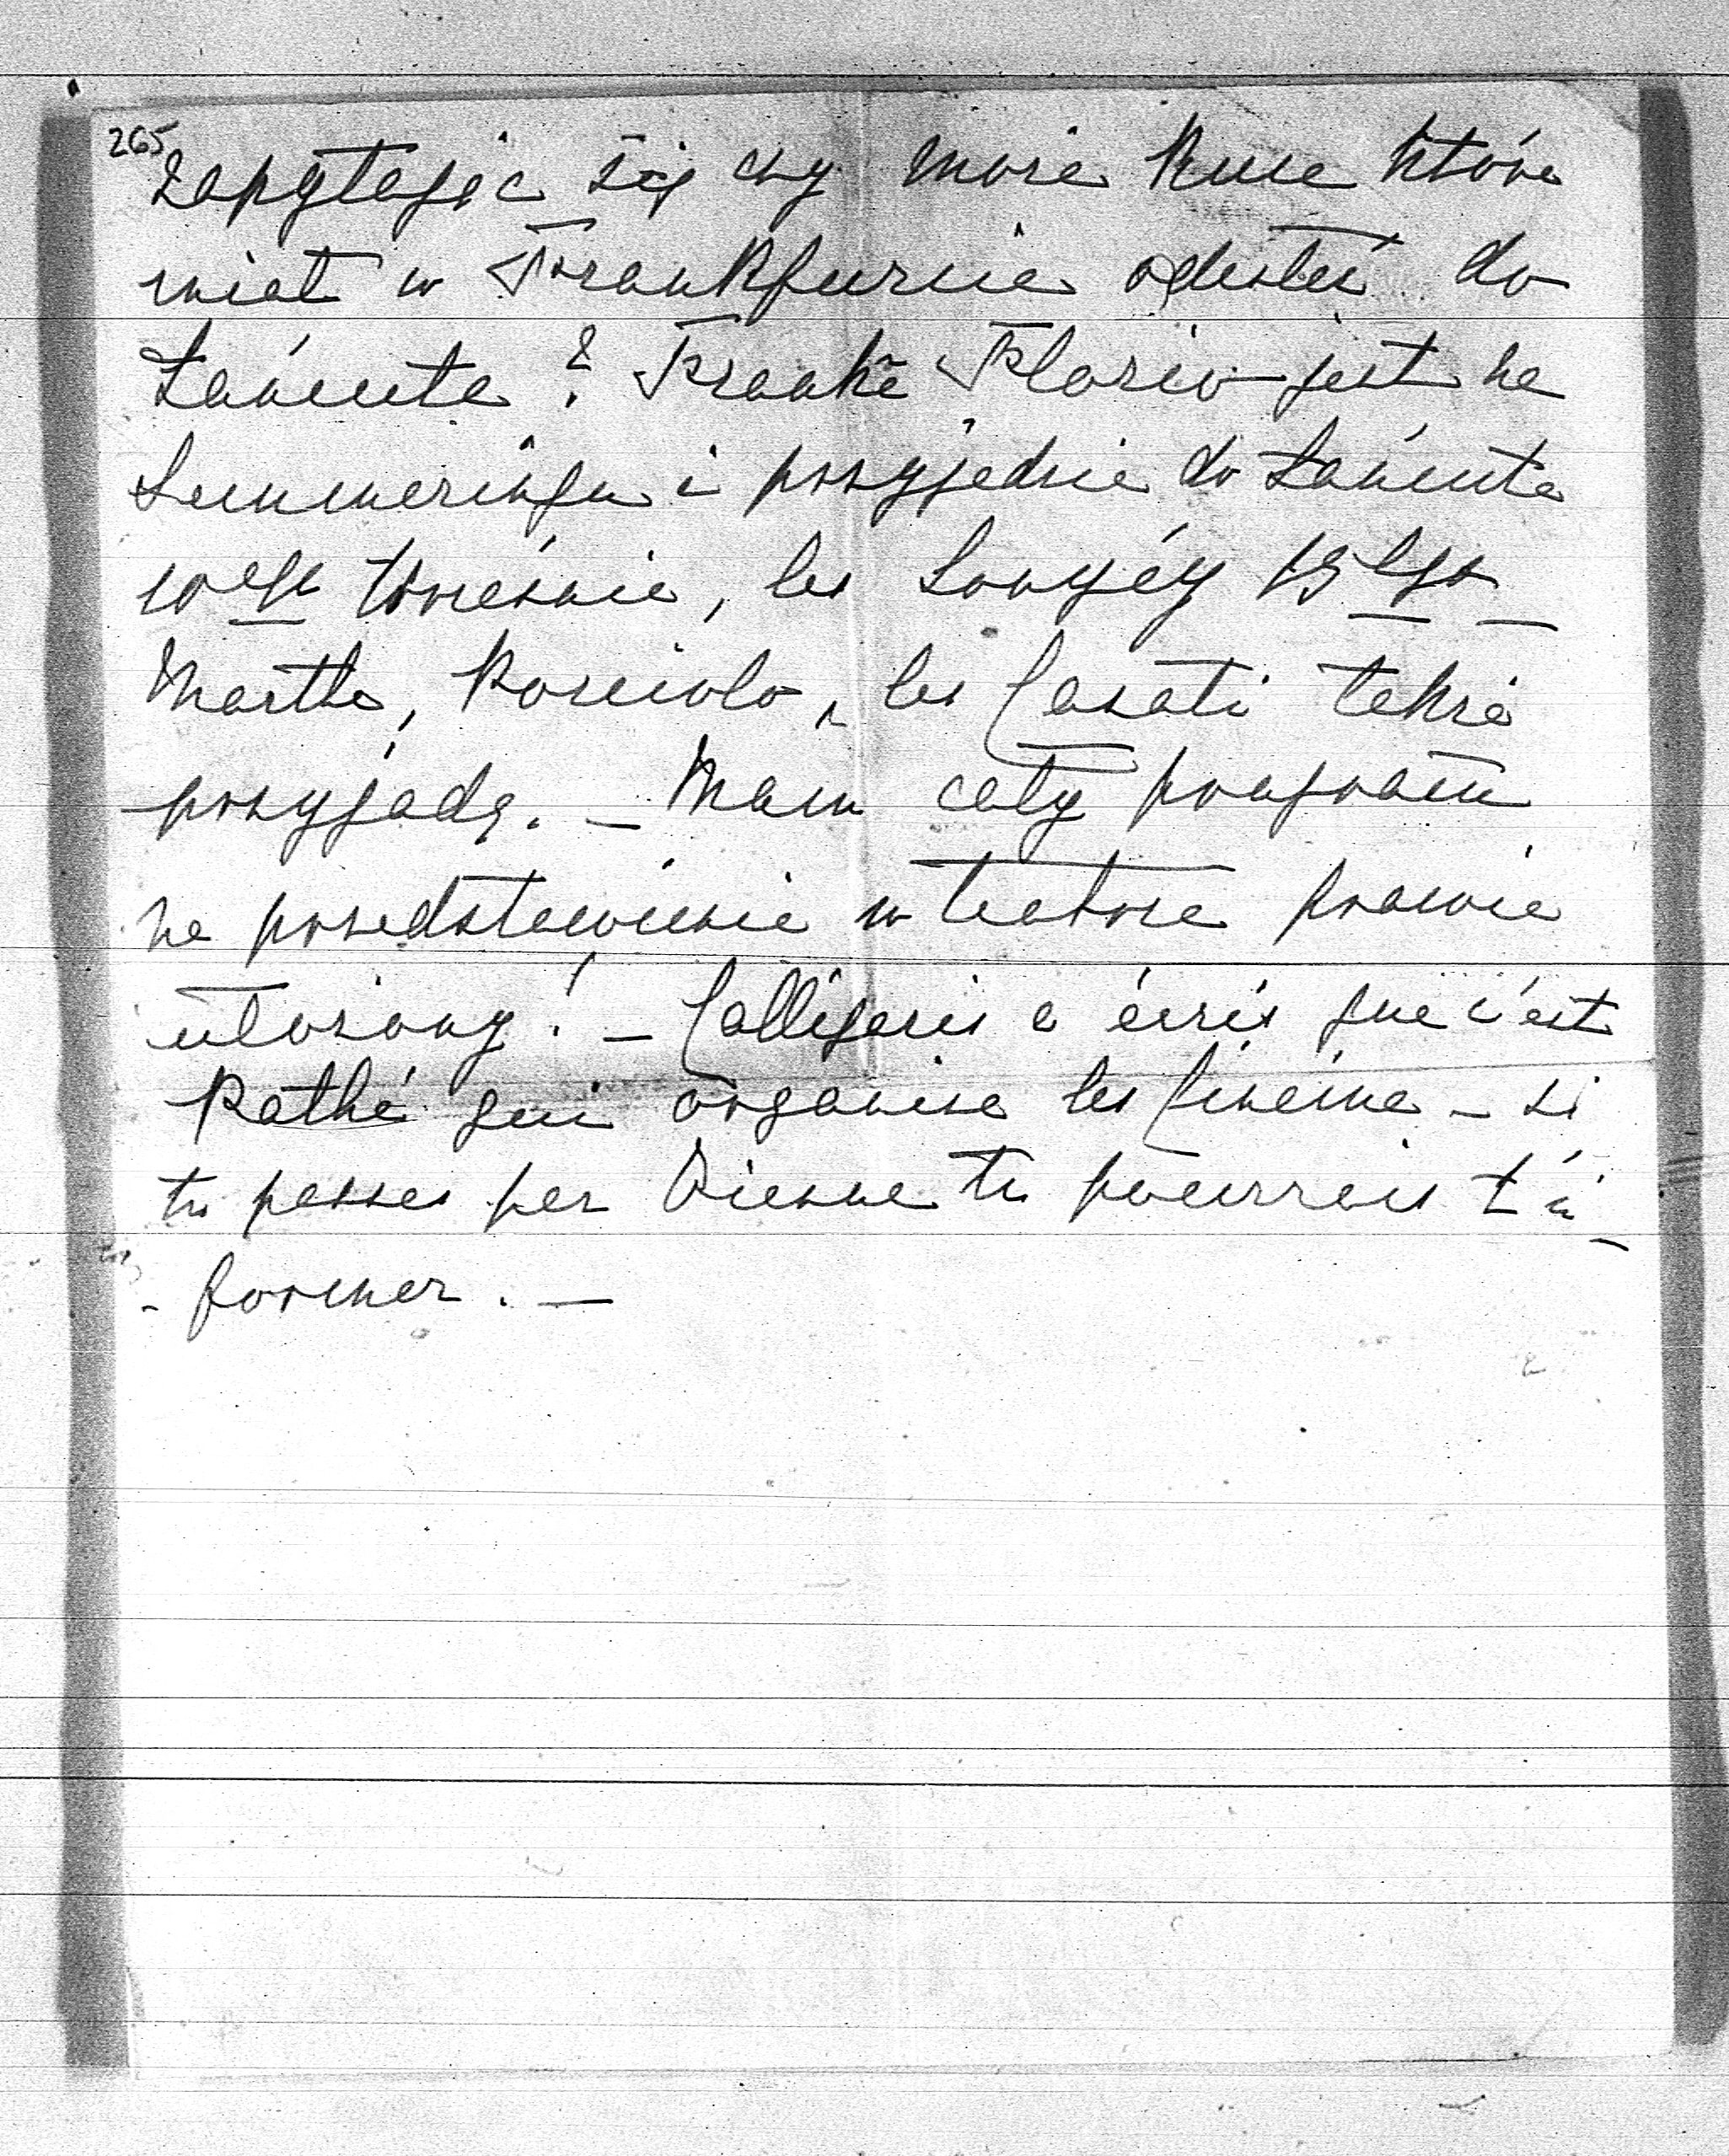 265
zapytając się czy może Kuce które
miał w Frankfurcie odesłać do
Łańcuta? Franka Florio jest na
Semmeringu i przyjedzie do Łańcuta
10ego Wrześnie, les Lonyáy 15ego
Marthe, Kosciolo, les Casati także
przyjadą. — Mam cały program
na przedstawienie w teatrze prawie
ułożony! — Calligaris a écris que c'est
Pathé qui organise les cinéma — si
tu passes par Vienne tu pourrais t'in-
-former. —